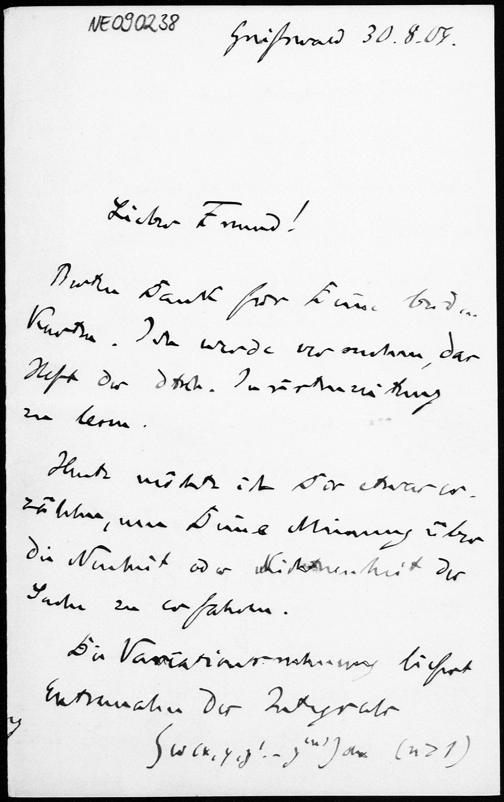 NE090238
Greifswald 30.8.09.
Lieber Freund!
Besten Dank für Deine beiden
Karten. Ich werde versuchen, das
Heft der dtsch.
zu lesen.
Heute möchte ich Dir etwas er-
zählen, um Deine Meinung über
die Neuheit oder Nichtneuheit der
Sache zu erfahren.
Die Variationsrechnung liefert
Extremalen der Integrale
∫ w(x, y, y', … y⁽ⁿ⁾) dx (n > 1)